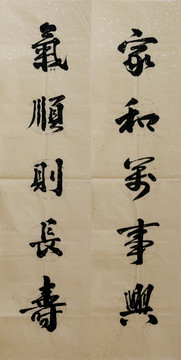 家和萬事興
氣順則長壽